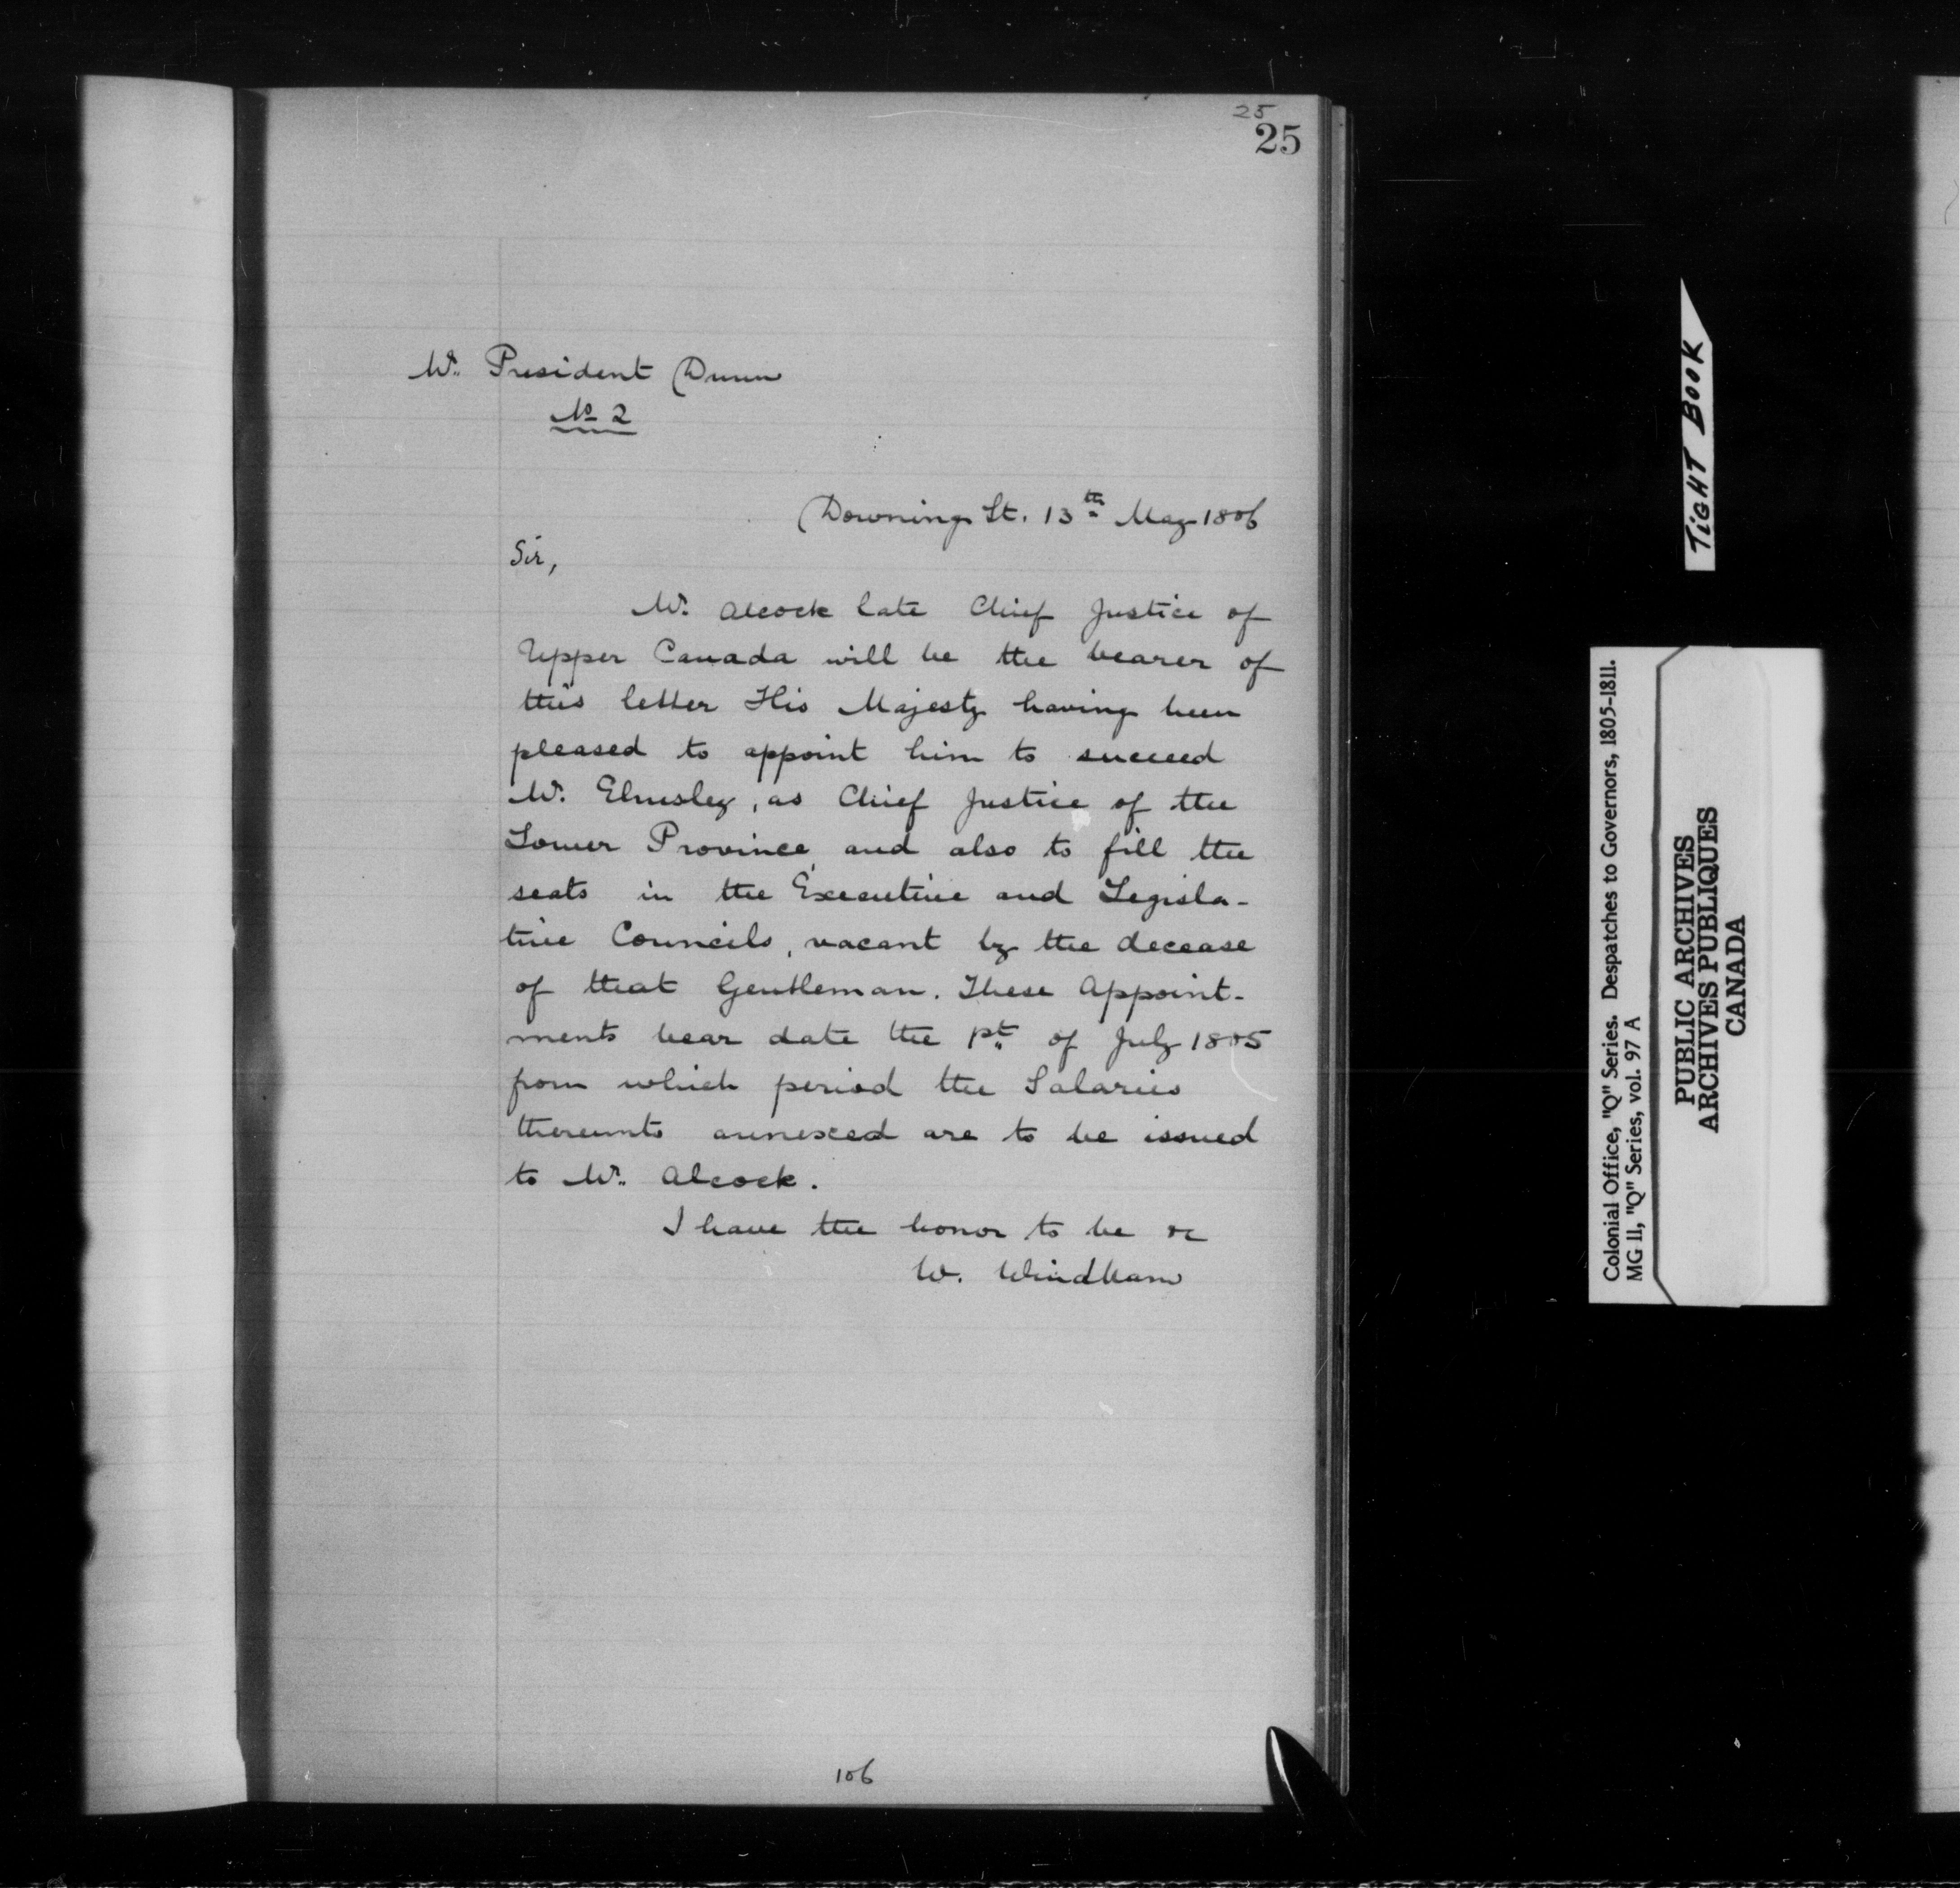 25
25
Mr. President Dunn
No 2
Downing St. 13th May 1806
Sir,
Mr. Alcock late Chief Justice of
Upper Canada will be the bearer of
this letter His Majesty having been
pleased to appoint him to succeed
Mr. Elmsley, as Chief Justice of the
Lower Province, and also to fill the
seats in the Executive and Legisla-
tive Councils, vacant by the decease
of that Gentleman. These Appoint-
ments bear date the 1st of July 1805
from which period the Salaries
thereunto annexed are to be issued
to Mr. Alcock.
I have the honor to be &c
W. Windham
106
TiGHT BOOK
Colonial Office, "Q" Series. Despatches to Governors, 1805-1811.
MG 11, "Q" Series, vol. 97 A
PUBLIC ARCHIVES
ARCHIVES PUBLIQUES
CANADA